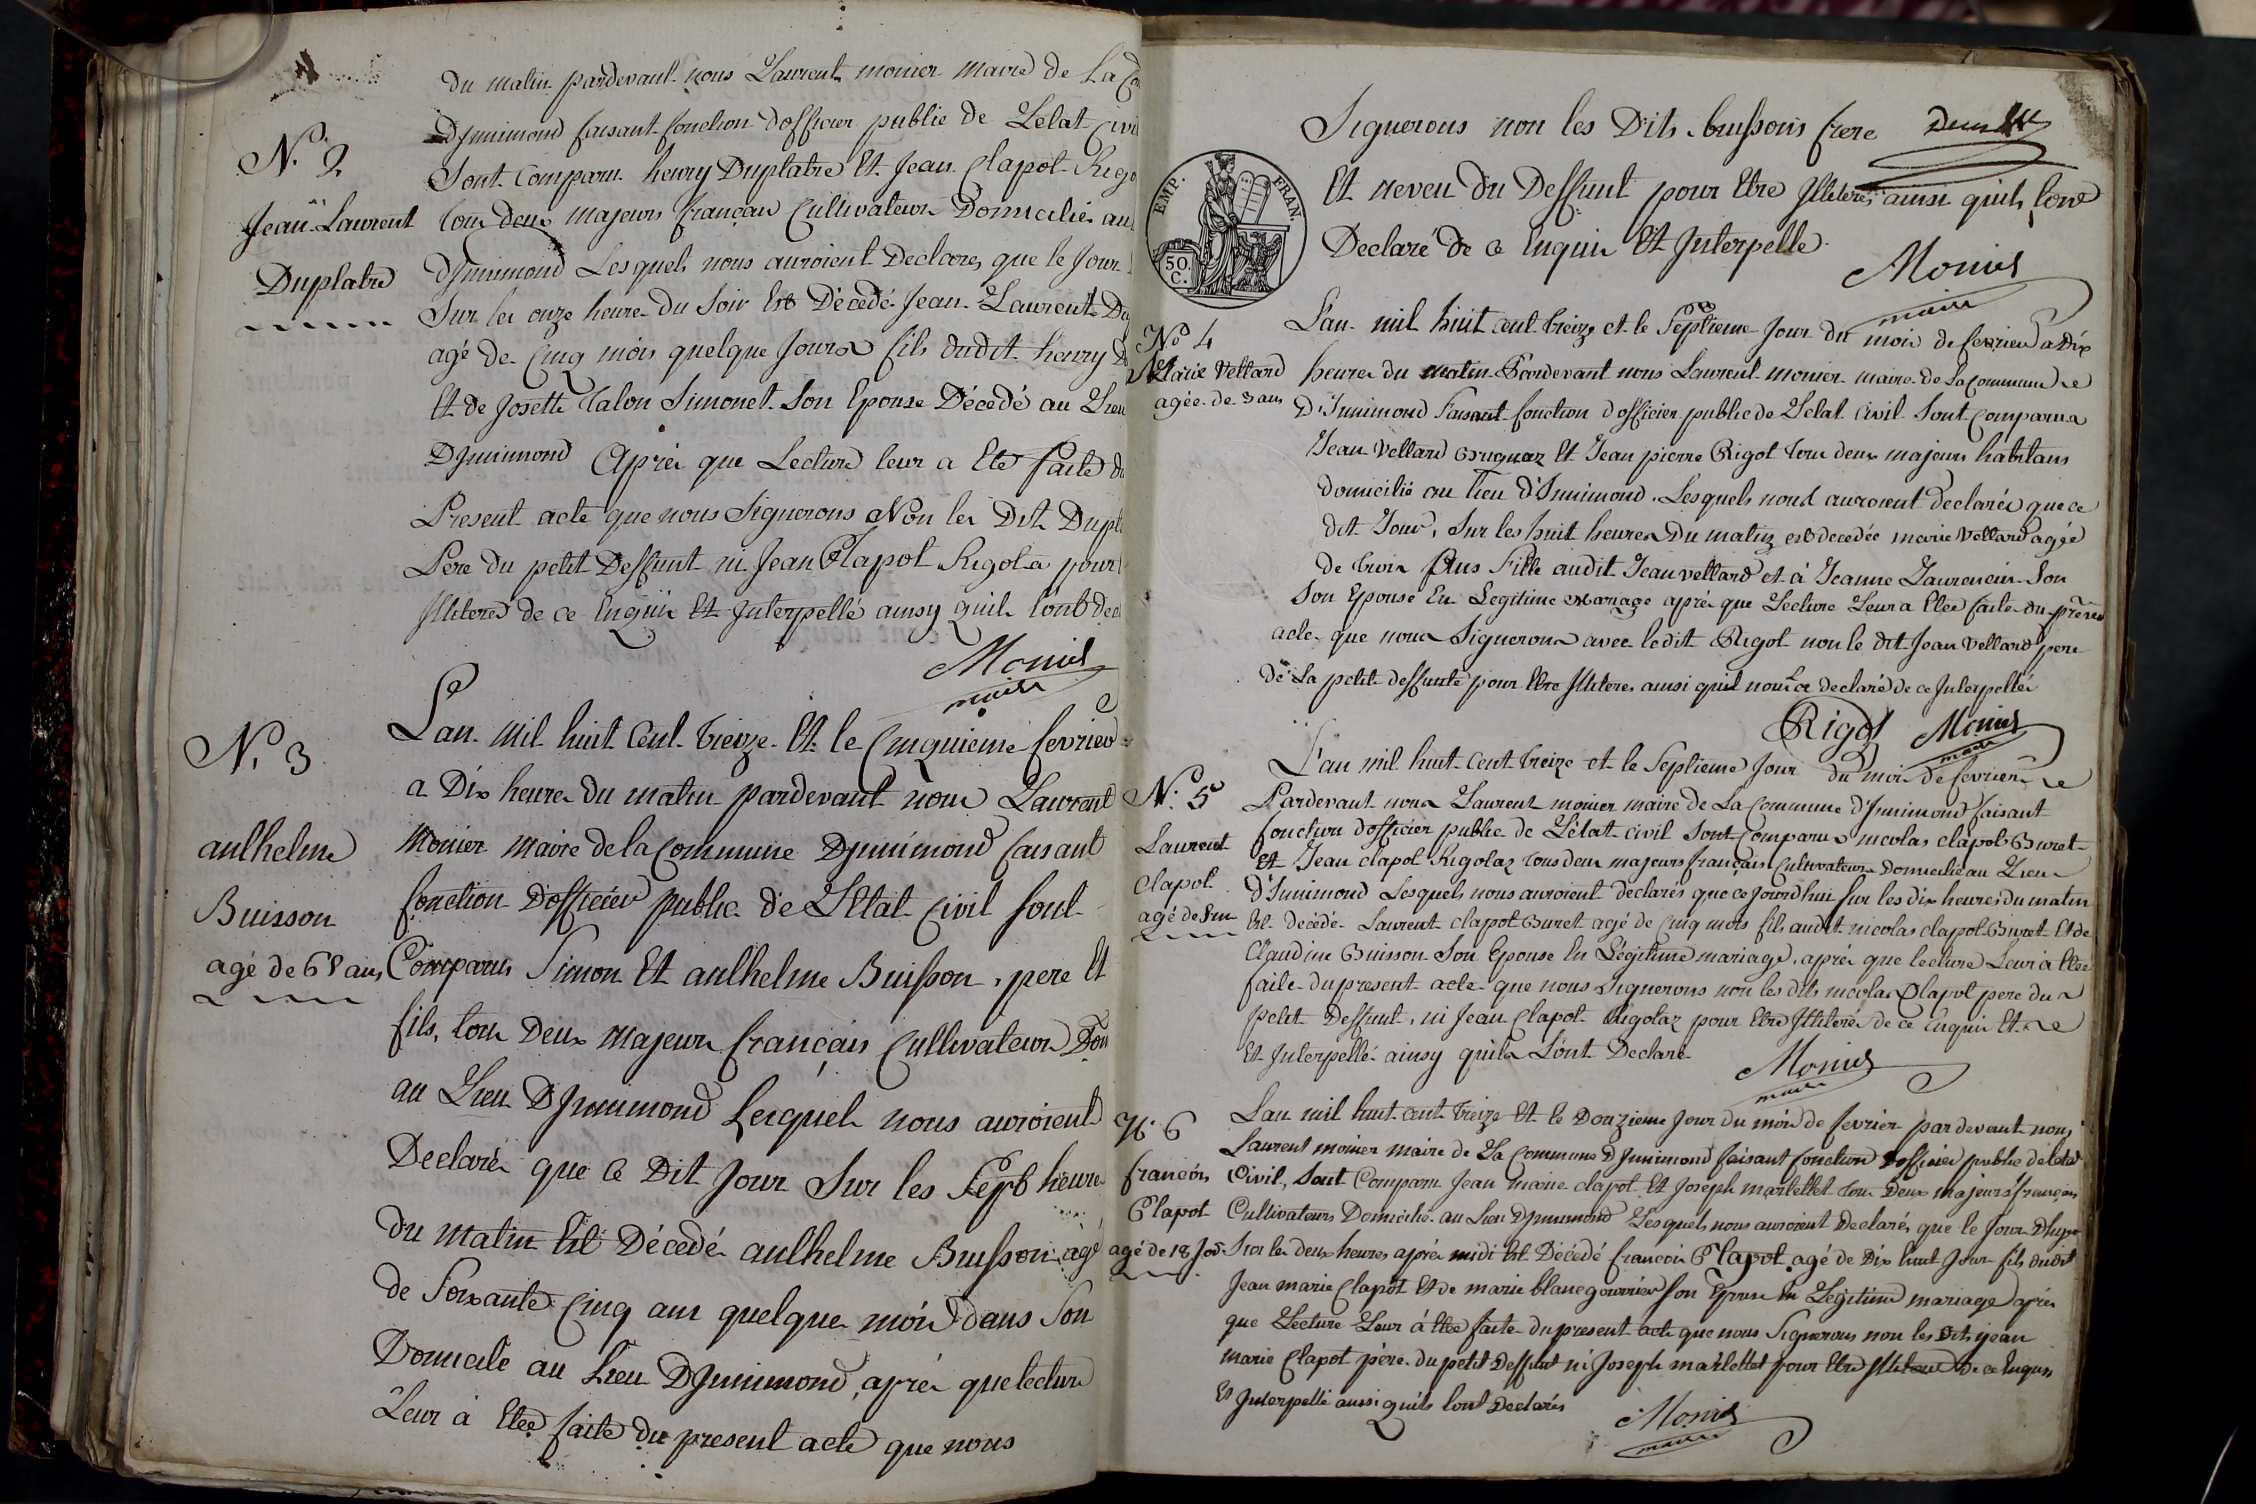 du matin pardevant nous Laurent monier maire de La
Djnnimond faisant fonction dofficier public de Letat Civil
N.º 2
Sont Comparu henry Duplatre Et Jean Clapot
Jean Laurent
tou deux majeurs français Cultivateurs Domicilié au
Duplatre
Djnnimond Lesquels nous auroient Declarez que le Jour
Sur les onze heure du Soir Est Décedé Jean Laurent
agé de Cinq mois quelque Jours fils dudit henry
Et de Josette Talon Simonet Son Epouse Décedé au Lieu
Djnnimond Après que Lecture leur a Eté faite
Present acte que nous Signerons Non les Dit
Pere du petit Deffunt ni Jean Clapot Rigola pour
Jlliteré de ce Enquii Et Jnterpellé ainsy quils L'ont
Monier
maire
N. 3
Lan mil huit Cent treize Et le Cinquieme fevrier
a Dix heures du matin pardevant nous Laurent
Monier maire de la Commune Djnnimond faisant
aulhelme
fonction Dofficier public de L'Etat Civil Sont
Buisson
agé de 65 ans
Comparus Simon Et aulhelme Buisson, pere Et
fils, tou Deux majeurs français Cultivateurs
au Lieu Djnnimond Lesquels nous auroient
Declarés que Ce Dit Jour Sur les Sept heures
du matin Est Décedé aulhelme Buisson agé
de Soixante Cinq ans quelque mois dans Son
Domicile au Lieu Djnnimond, après que lecture
Leur à Etée faite du present acte que nous
Signerons non les Dits buissons frere
Et neveu du Deffunt pour Etre Jlliterés ainsi quils l'ont
Declaré de ce Enquii Et Jnterpelle
Monier
maire
EMP. FRAN.
50. C.
Nº 4
Marie Vettard
agée de 3 ans
L'an mil huit cent treize et le Septieme Jour du mois de fevrier a Dix
heures du matin Pardevant nous Laurent monier maire de La Commune
D'Jnnimond Faisant fonction d'officier public de L'etat Civil Sont Comparus
Jean Vettard Et Jean pierre Rigot tou deux majeurs habitans
domicilié au lieu d'Jnnimond. Lesquels nous auroient declarés que ce
dit Jour, Sur les huit heures Du matin est decedée marie Vettard agée
de trois Ans Fille audit Jean Vettard et à Jeanne Laurencin Son
Son Epouse En Legitime Mariage après que Lecture Leur a Etée faite du
acte que nous Signerons avec ledit Rigot non le dit Jean Vettard pere
de La petit deffunte pour Etre Jlliteré ainsi quil nous l'a declaré de ce Jnterpellé
Rigot Monier
maire
N.º 5
Laurent
Clapot
L'an mil huit Cent treize et le Septieme Jour du mois de fevrier
Pardevant nous Laurent monier maire de La Commune d'Jnnimond faisant
fonction d'officier public de L'état civil Sont Comparus nicolas clapot Buret
Et Jean clapot Rigolaz tous deux majeurs français Cultivateurs Domicilié au Lieu
d'Jnnimond Lesquels nous auroient declarés que ce jourd'hui Sur les dix heures du matin
Est décédé Laurent clapot Buret agé de Cinq mois fils audit nicolas clapot Buret Et de
Claudine Buisson Son Epouse En Légitime mariage, après que lecture Leur à Etée
faite du present acte que nous Signerons non les dits nicolas Clapot pere du
petit Deffunt, ni Jean Clapot Rigolaz pour Etre Jlliterés de ce Enquii Et
Et Jnterpellé ainsy quils L'ont Declaré
Monier
maire
Nº 6
françois
Clapot
agé de 18 Jos
Lan mil huit cent treize Et le Douzieme Jour du mois de fevrier pardevant nous
Laurent monier maire de La Commune Djnnimond faisant fonction d'officier public de letat
Civil, Sont Comparu Jean marie clapot Et Joseph martellet tou Deux majeurs français
Cultivateurs Domicilié au Lieu Djnnimond Lesquels nous auroient Declarés que le Jour Dhyer
Sur les deux heures après midi Est Décédé françois Clapot agé de Dix huit Jour fils dudit
Jean marie Clapot Et de marie blanc Son Epouse En Legitime mariage après
que Lecture Leur à Etée faite du present acte que nous Signerons non les Dits jean
marie Clapot père du petit Deffunt ni Joseph martellet pour Etre Jlliteré de ce Enquii
Et Jnterpellé aussi quils lont Declarés
Monier
maire